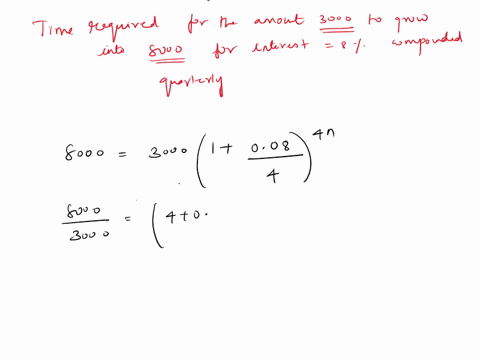 Time required for the amount 3000 to grow
into 8000 for interest = 8% compounded
quarterly
8000 = 3000 (1 + 0.08/4)^4n
8000/3000 = (4+0.